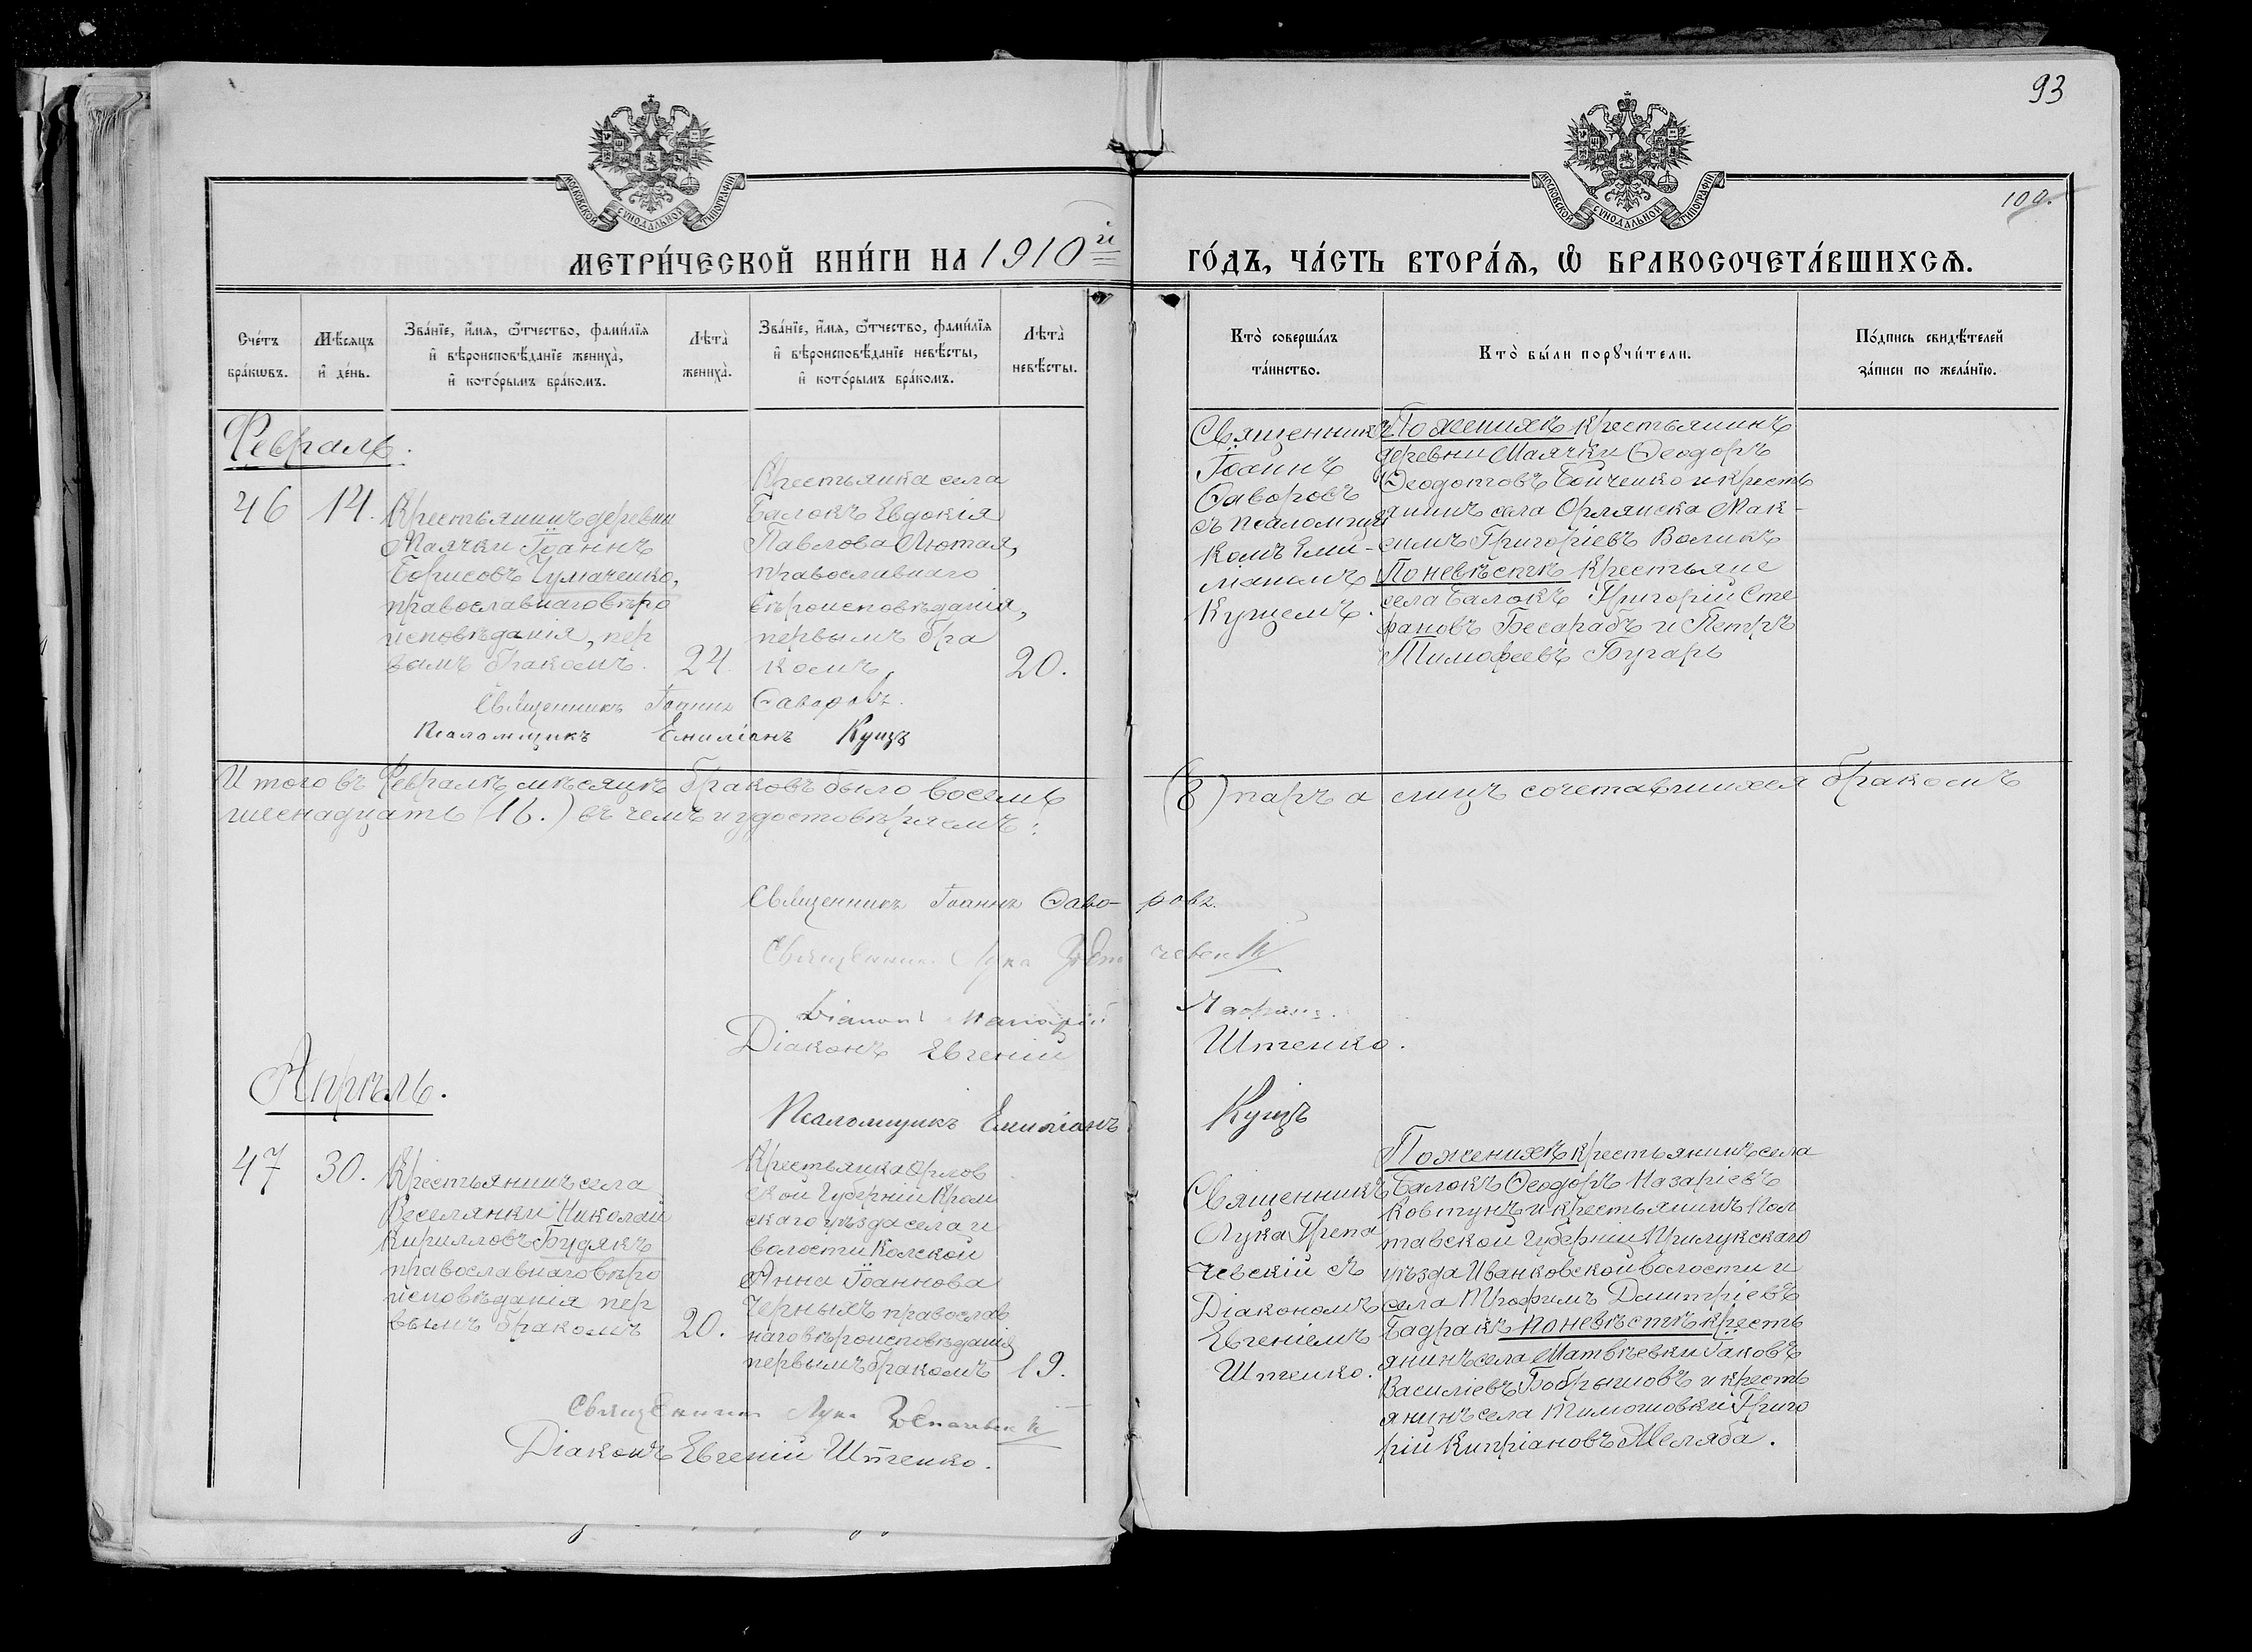 93
МОСКОВСКОЙ СѴНОДАЛЬНОЙ ТИПОГРАФІИ
МОСКОВСКОЙ СѴНОДАЛЬНОЙ ТИПОГРАФІИ
100.
МЕТРИ́ЧЕСКОЙ КНИ́ГИ НА 1910й
ГО́ДЪ, ЧА́СТЬ ВТОРА́Ѧ, Ѽ БРАКОСОЧЕТА́ВШИХСѦ.
Сче́тъ
бра́кѡвъ.
Мѣ́сѧцъ
и҆ де́нь.
Зва́нїе, и҆́мѧ, ѻ҆́тчество, фами́лїѧ
и҆ вѣроисповѣ́данїе жениха̀,
и҆ кото́рымъ бра́комъ.
Лѣта̀
жениха̀.
Зва́нїе, и҆́мѧ, ѻ҆́тчество, фами́лїѧ
и҆ вѣроисповѣ́данїе невѣ́сты,
и҆ кото́рымъ бра́комъ.
Лѣта̀
невѣ́сты.
Кто̀ соверша́лъ
та́инство.
Кто̀ бы́ли порꙋчи́тели.
По́дпись свидѣ́телей
за́писи по жела́нїю.
Февраль.
46
14.
Крестьянинъ деревни
Маячки Іоаннъ
Борисовъ Чумаченко,
православнаго вѣро
исповѣданія, пер
вымъ бракомъ.
24.
Крестьянка села
Балокъ Евдокія
Павлова Лютая,
православнаго
вѣроисповѣданія,
первымъ бра
комъ,
20.
Священникъ
Іоаннъ
Ѳаворовъ
съ псаломщи
комъ Еми-
ліаномъ
Куцемъ.
По женихѣ крестьянинъ
деревни Маячки Ѳеодоръ
Ѳеодотовъ Бойченко и кресть
янинъ села Орлянска Мак-
симъ Григоріевъ Воликъ
По невѣстѣ крестьяне
села Балокъ Григорій Сте
фановъ Бесарабъ и Петръ
Тимофеевъ Бугарь
Священникъ Іоаннъ Ѳаворовъ.
Псаломщикъ Емиліанъ Куцъ
Итого въ Февралѣ мѣсяцѣ браковъ было восемь (8) паръ а лицъ сочетавшихся бракомъ
шеснадцать (16.) въ чемъ и удостовѣряемъ:
Священникъ Іоаннъ Ѳаво-ровъ.
Священникъ Лука
Діаконъ
Діаконъ Евгеній Штенко.
Псаломщикъ Емиліанъ Куцъ
Апрѣль.
47
30.
Крестьянинъ села
Веселянки Николай
Кирилловъ Будякъ
православнаго вѣро
исповѣданія пер
вымъ бракомъ
20.
Крестьянка Орлов
ской губерніи Кром
скаго уѣзда села и
волости Колской
Анна Іоаннова
Черныхъ православ
наго вѣроисповѣданія
первымъ бракомъ
19.
Священникъ
Лука Грепа
чевскій съ
Діакономъ
Евгеніемъ
Штенко.
По женихѣ крестьянинъ села
Балокъ Ѳеодоръ Назаріевъ
Ковтунъ и крестьянинъ Пол
тавской губерніи Прилукскаго
уѣзда Иванковской волости и
села Трофимъ Дмитріевъ
Бадракъ по невѣстѣ кресть
янинъ села Матвѣевки Іаковъ
Василіевъ Бобрышовъ и кресть
янинъ села Тимошовки Григо
рій Кипріановъ Меляба.
Священникъ Лука
Діаконъ Евгеній Штенко.